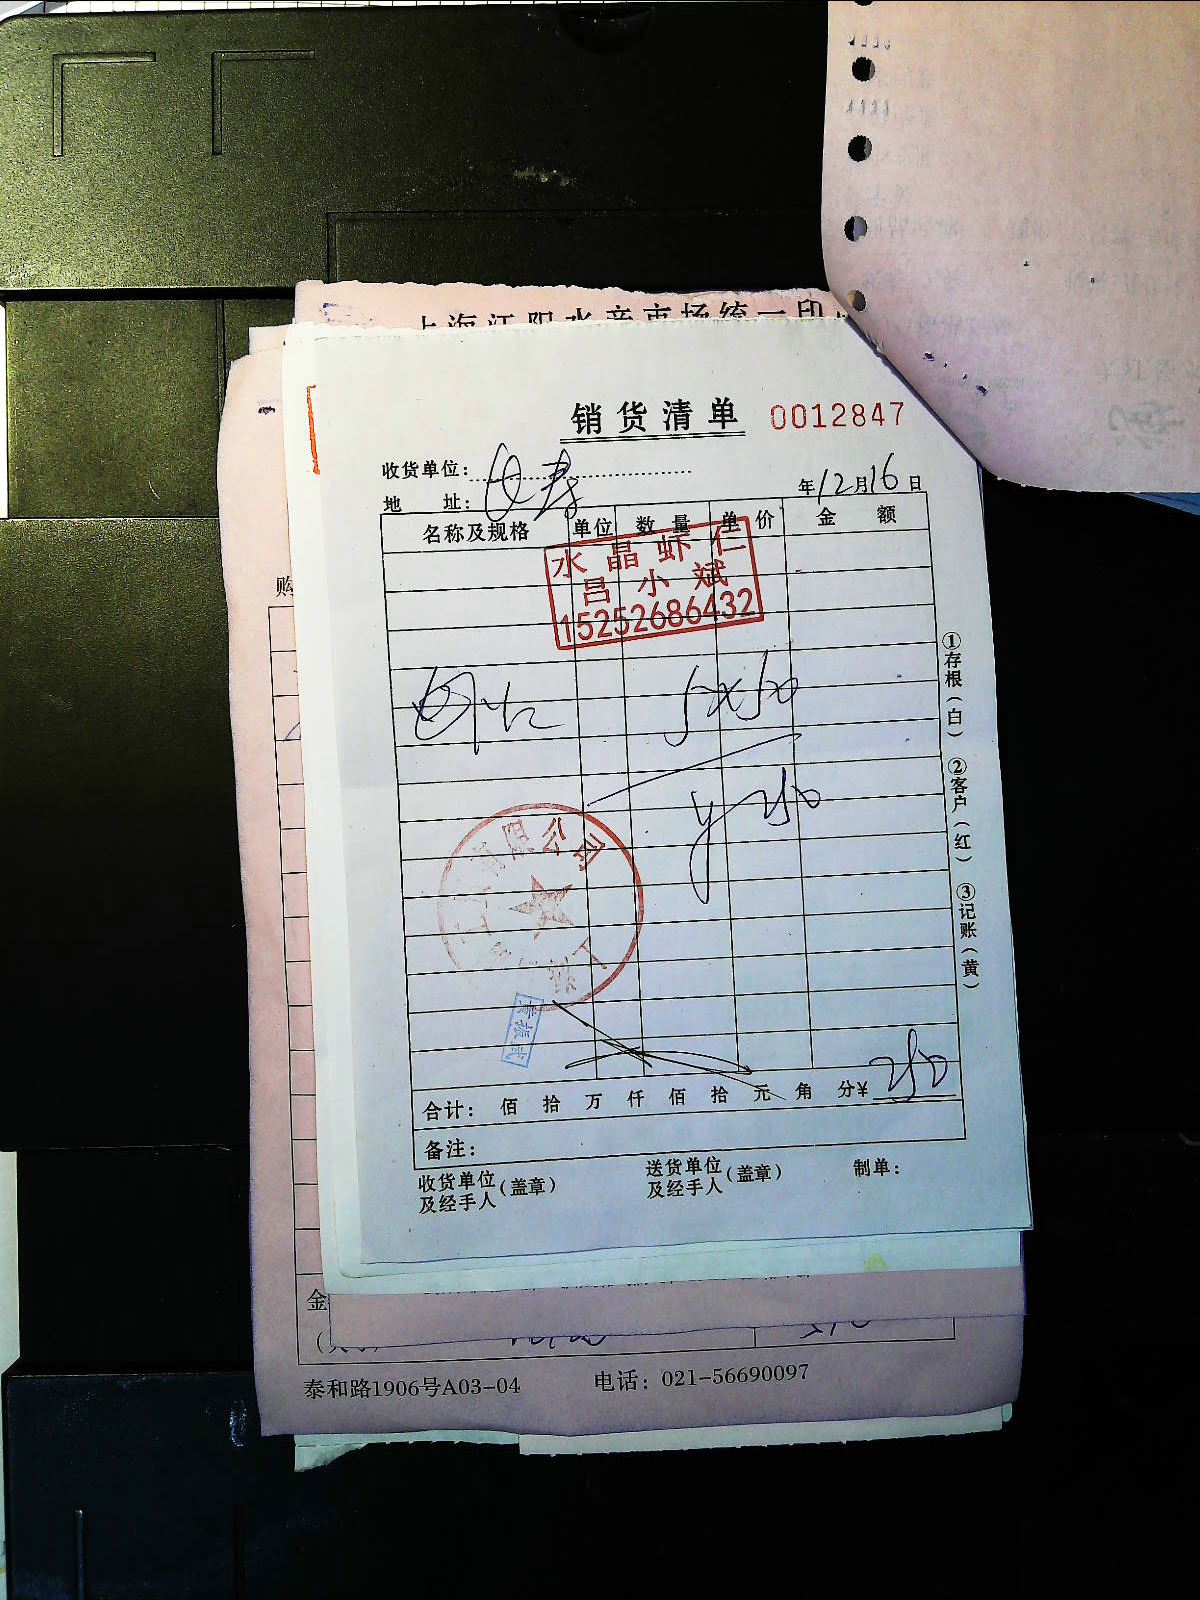 上海江阳水产市场统一印
销货清单 0012847
收货单位:
地 址:
年12月16日
名称及规格 单位 数量 单价 金额
水晶虾仁
吕小斌
15252686432
虾仁 5×50
¥250
有限公司
上海
合计: 佰 拾 万 仟 佰 拾 元 角 分¥ 250
备注:
收货单位及经手人(盖章) 送货单位及经手人(盖章) 制单:
①存根(白) ②客户(红) ③记账(黄)
购
金
泰和路1906号A03-04 电话: 021-56690097